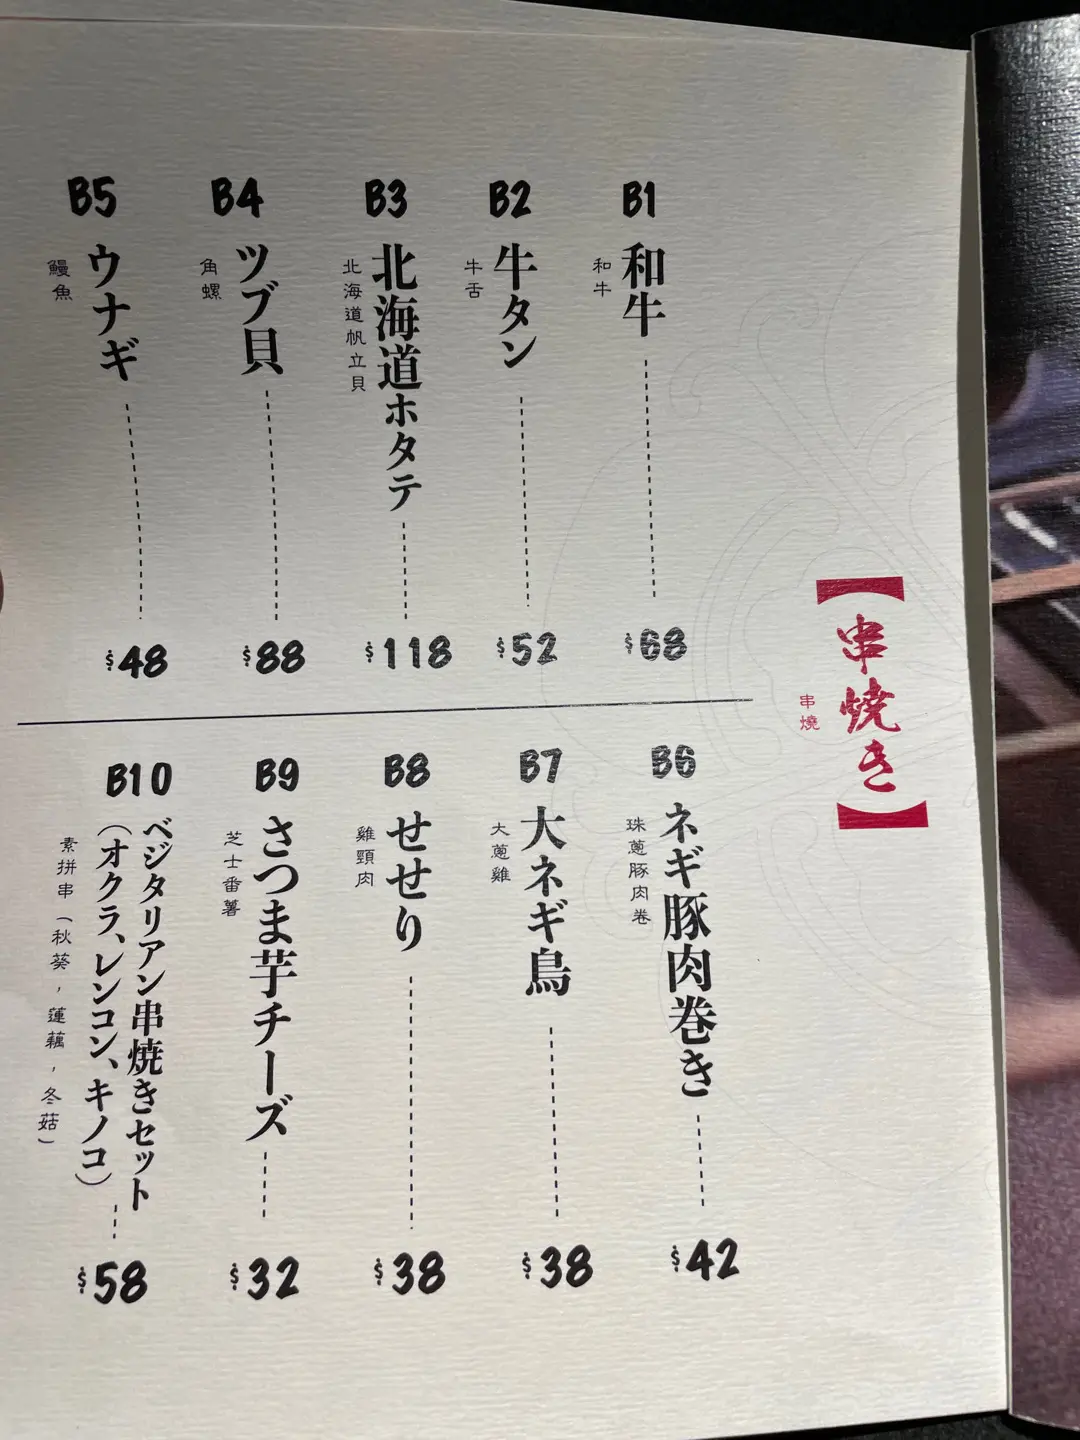 【串焼き】
串燒
B1
和牛
和牛
$68
B2
牛タン
牛舌
$52
B3
北海道ホタテ
北海道帆立貝
$118
B4
ツブ貝
角螺
$88
B5
ウナギ
鰻魚
$48
B6
ネギ豚肉巻き
珠蔥豚肉卷
$42
B7
大ネギ鳥
大蔥雞
$38
B8
せせり
雞頸肉
$38
B9
さつま芋チーズ
芝士番薯
$32
B10
ベジタリアン串焼きセット
(オクラ、レンコン、キノコ)
素拼串(秋葵，蓮藕，冬菇)
$58